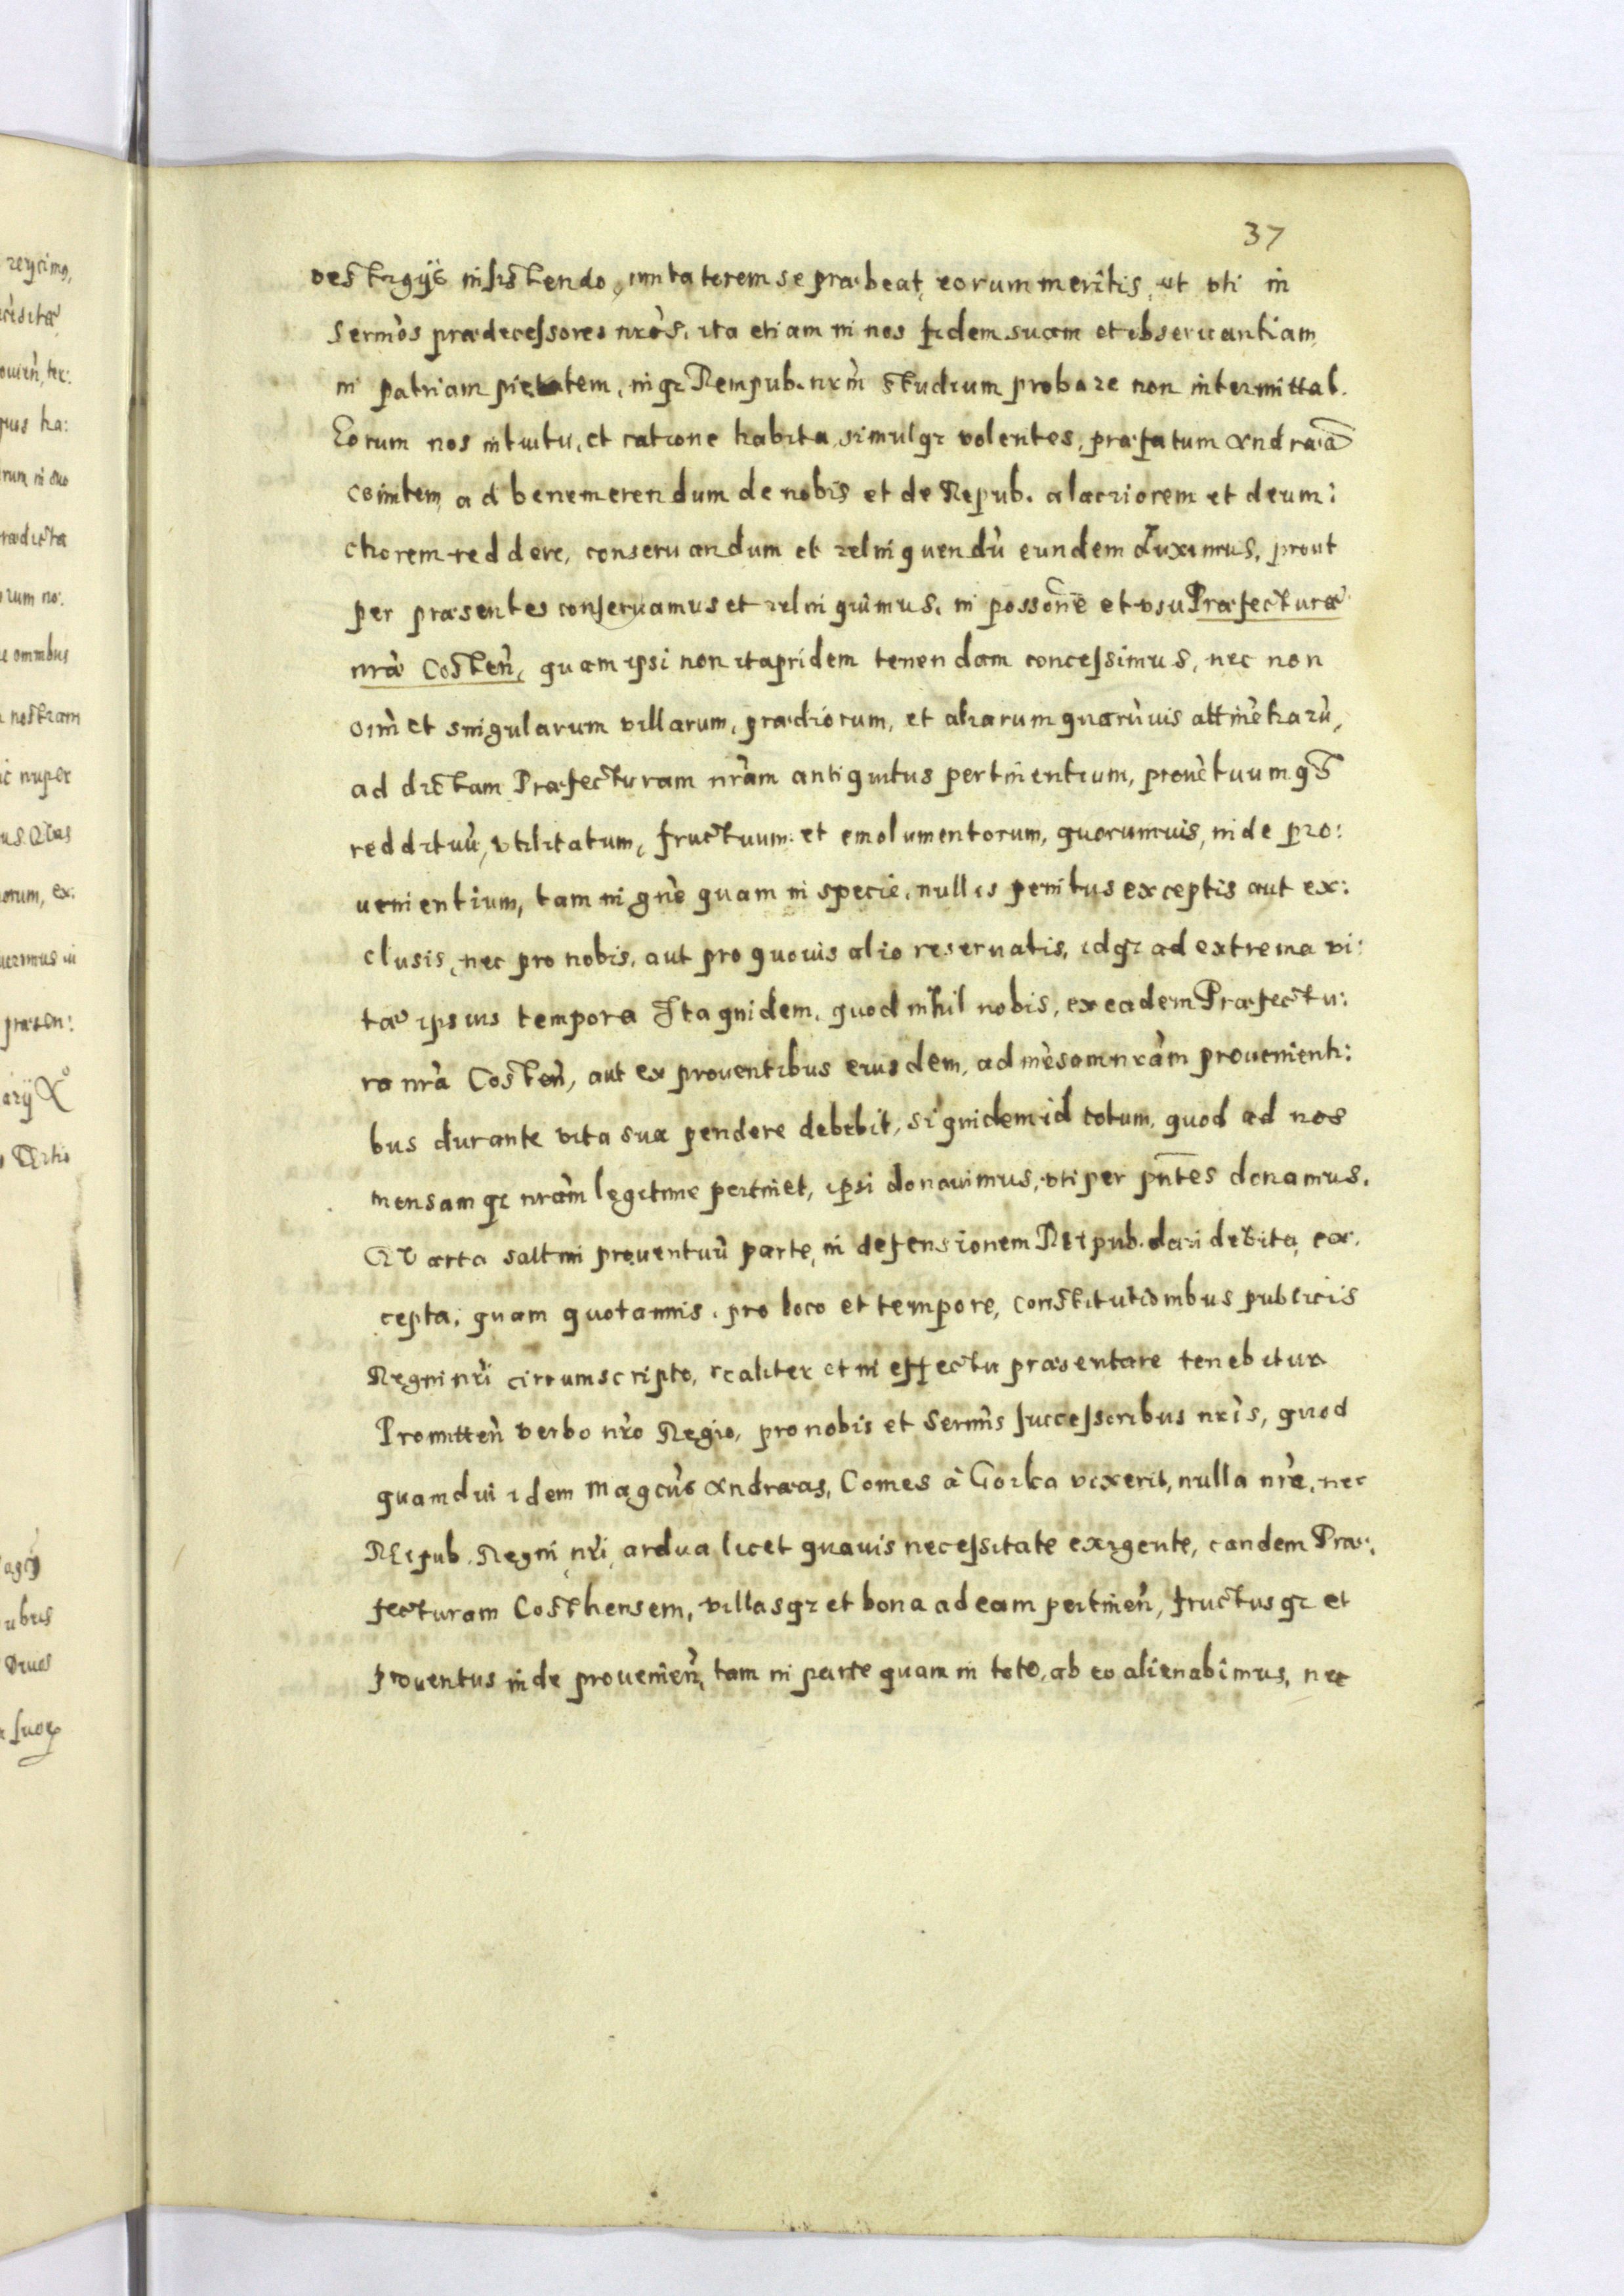 37
vestigijs insistendo, imitatorem se præbeat, eorum meritis, ut vti in
Sermòs prædecessores nròs, ita etiam in nos fidem suam et obseruantiam,
in patriam pietatem, inq3 Rempub. nrm̀ studium probare non intermittat.
Eorum nos intuitu, et ratione habita, simulq3 volentes, præfatum Andreã
comitem, ad benemerendum de nobis et de Repub. alacriorem et deuin:
ctiorem reddere, conseruandum et relinquendù eundem duximus, prout
per præsentes conseruamus et relinquimus, in possone et vsu Præfecturæ
nræ̀ Costen̄, quam ipsi non ita pridem tenendam concessimus, nec non
oim̀ et singularum villarum, prædiorum, et aliarum quarùuis attinètiarù,
ad dictam Præfecturam nràm antiquitus pertinentium, prouètuumq3
reddituù, vtilitatum, fructuum et emolumentorum, quorumuis, inde pro:
uenientium, tam in gnè quam in specie, nullis penitus exceptis aut ex:
clusis, nec pro nobis, aut pro quouis alio reseruatis, idq3 ad extrema vi:
tæ ipsius tempora Ita quidem, quod nihil nobis, ex eadem Præfectu:
ra nrà Costen̄, aut ex prouentibus eiusdem, ad mèsam nràm prouenienti:
bus durante vita sua pendere debebit, siquidem id totum, quod ad nos
mensamq3 nràm legitime pertinet, ipsi donauimus, vti per pñtes donamus.
QVarta saltim prouentuù parte, in defensionem Reipub. dari debita, ex:
cepta, quam quotannis, pro loco et tempore, constitutionibus publicis
Regni nrì circumscripto, realiter et in effectu præsentare tenebitur
Promitten̄ verbo nrò Regio, pro nobis et Sermìs successoribus nrìs, quod
quamdiu idem Magcùs Andreas, Comes à Gorka vixerit, nulla nrà, nec
REipub. Regni nrì, ardua licet quauis necessitate exigente, eandem Præ:
fecturam Costhensem, villasq3 et bona ad eam pertinen̄, fructusq3 et
prouentus inde prouenien̄, tam in parte quam in toto, ab eo alienabimus, nec